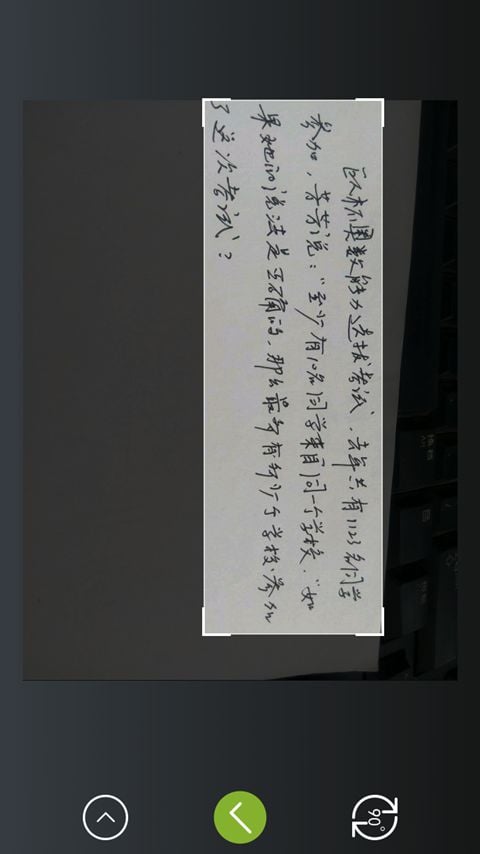 奥数能力选拔考试,去年共有1123名同学
参加,芳芳说:“至少有10名同学来自同一个学校.”如
果她的说法是正确的,那么最多有多少个学校参加
了这次考试?
90°